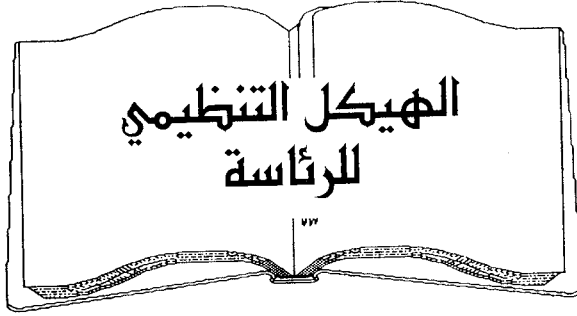 الهيكل التنظيمي
للرئاسة